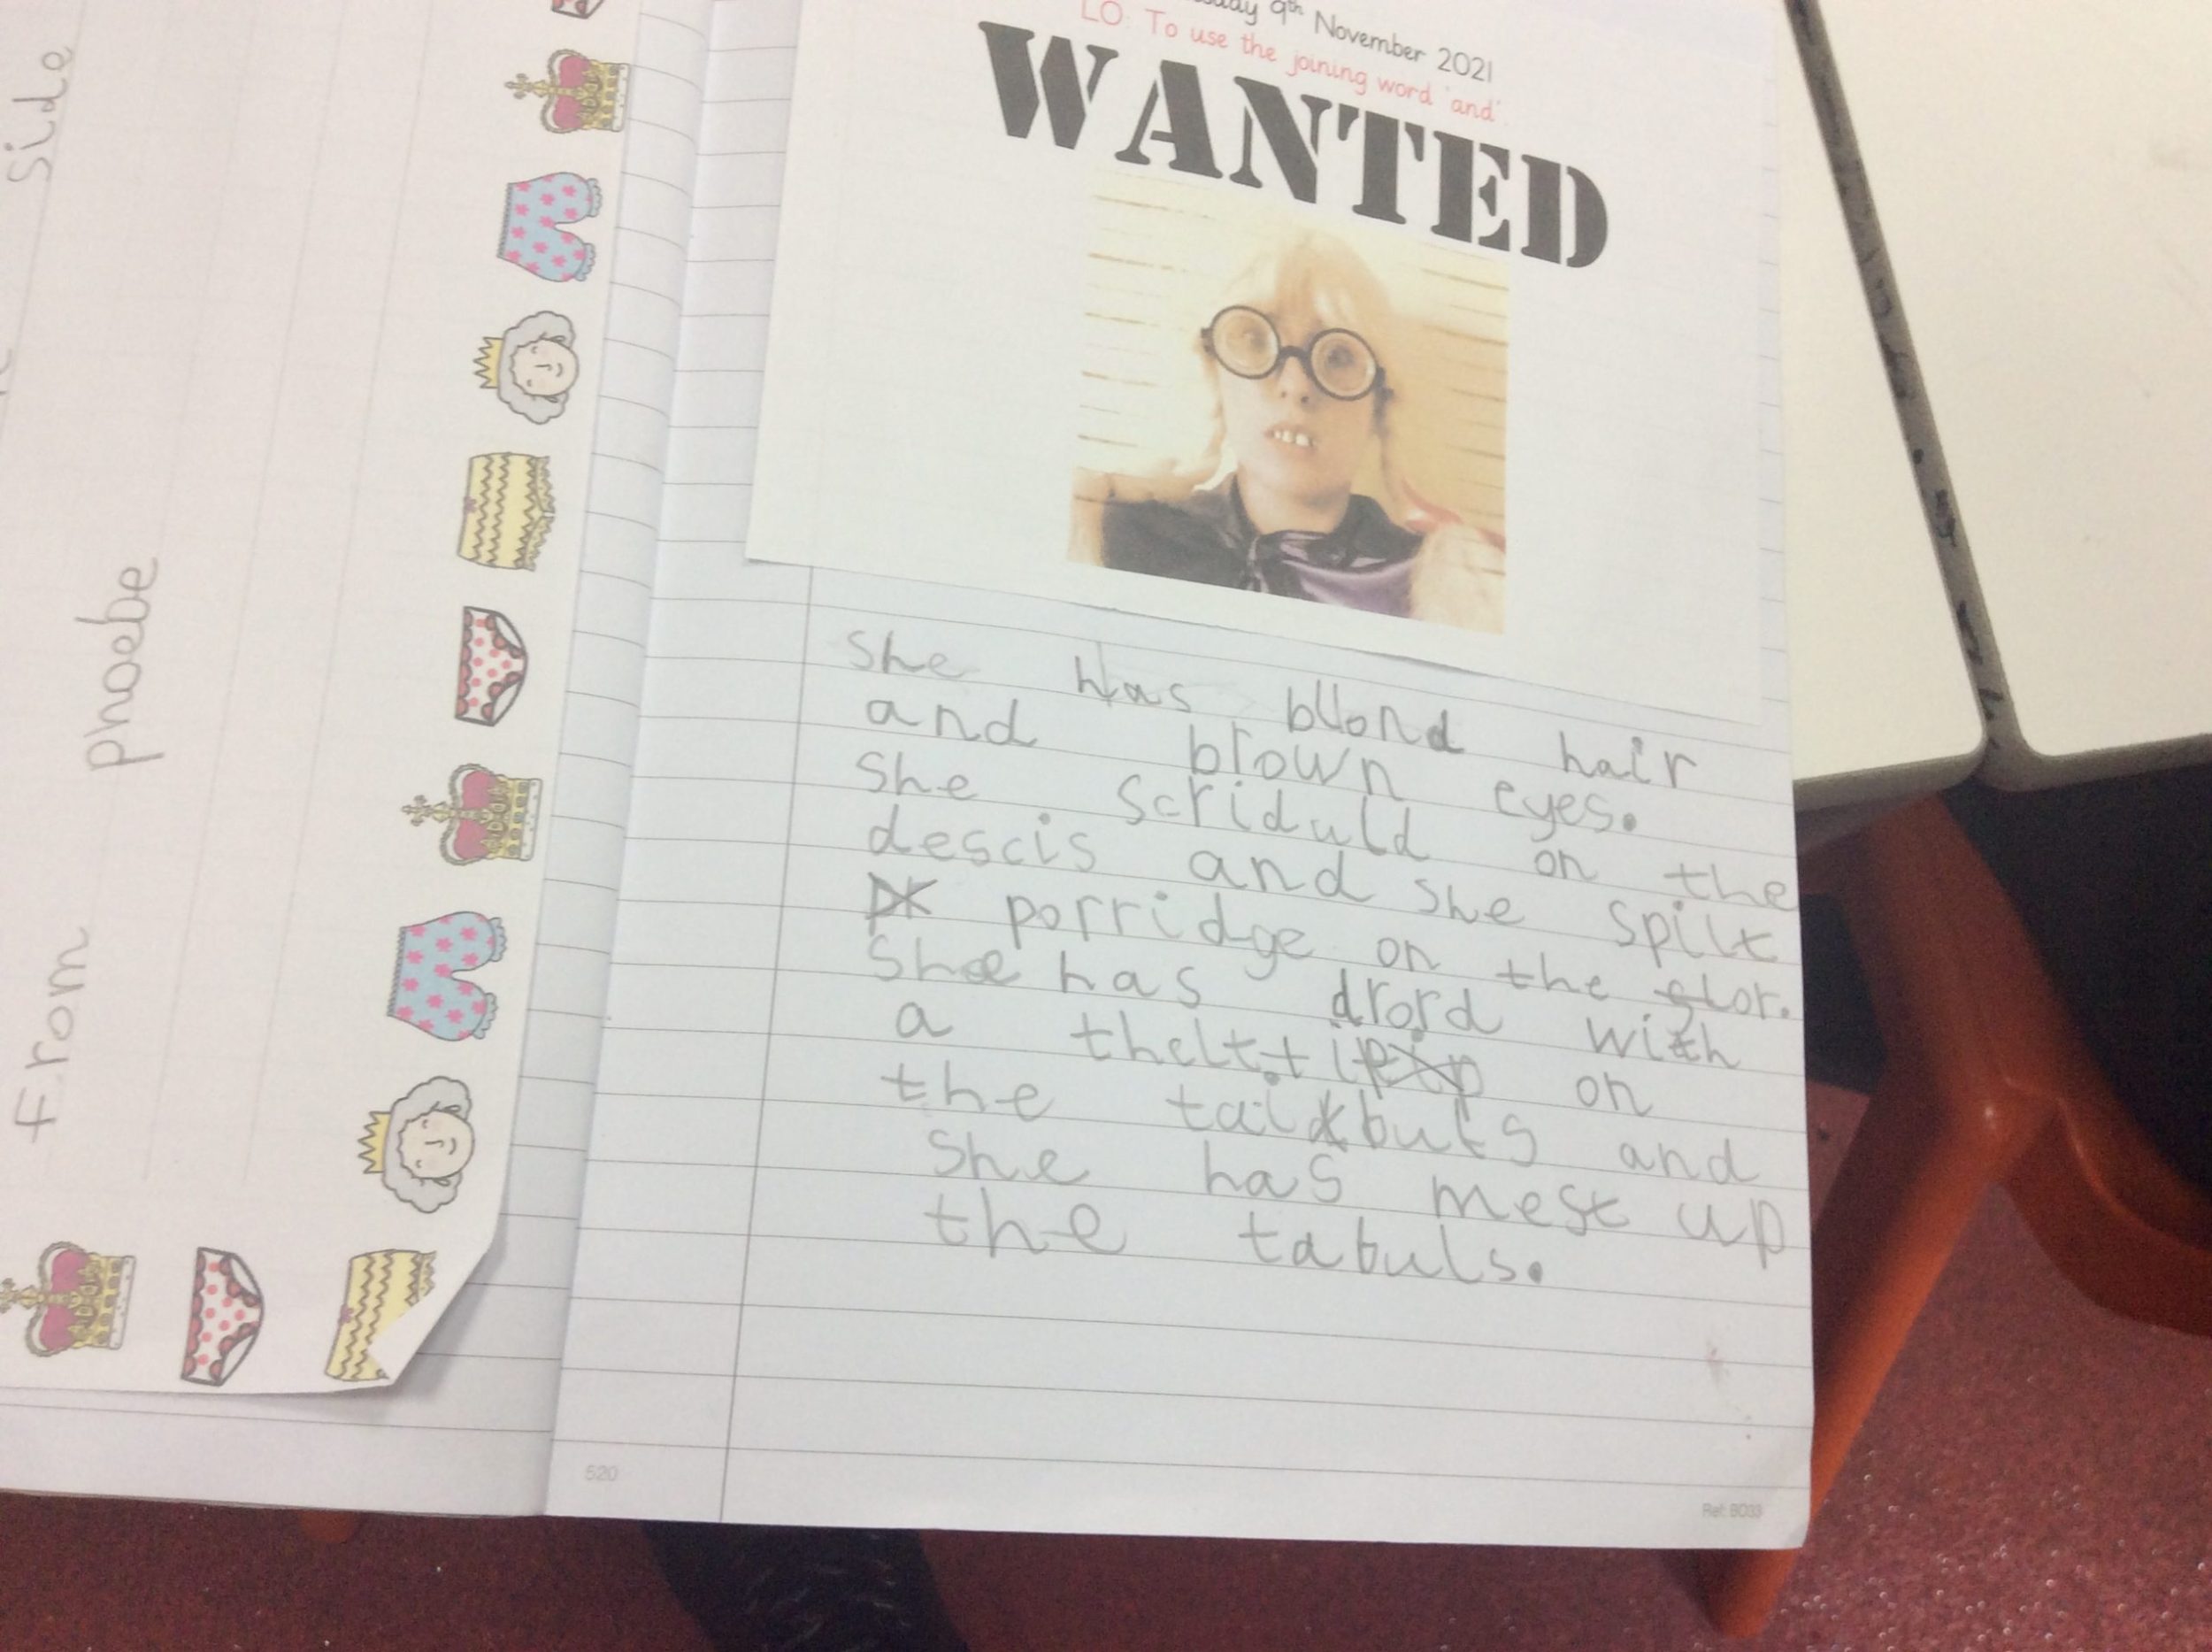 side
From phoebe
day 9th November 2021
LO: To use the joining word 'and'.
WANTED
She has blond hair
and brown eyes.
She scriduld on the
descis and she spilt
porridge on the flor.
She has drord with
a on
the and
She has mest up
the tabuls.
520
Ref: 6033